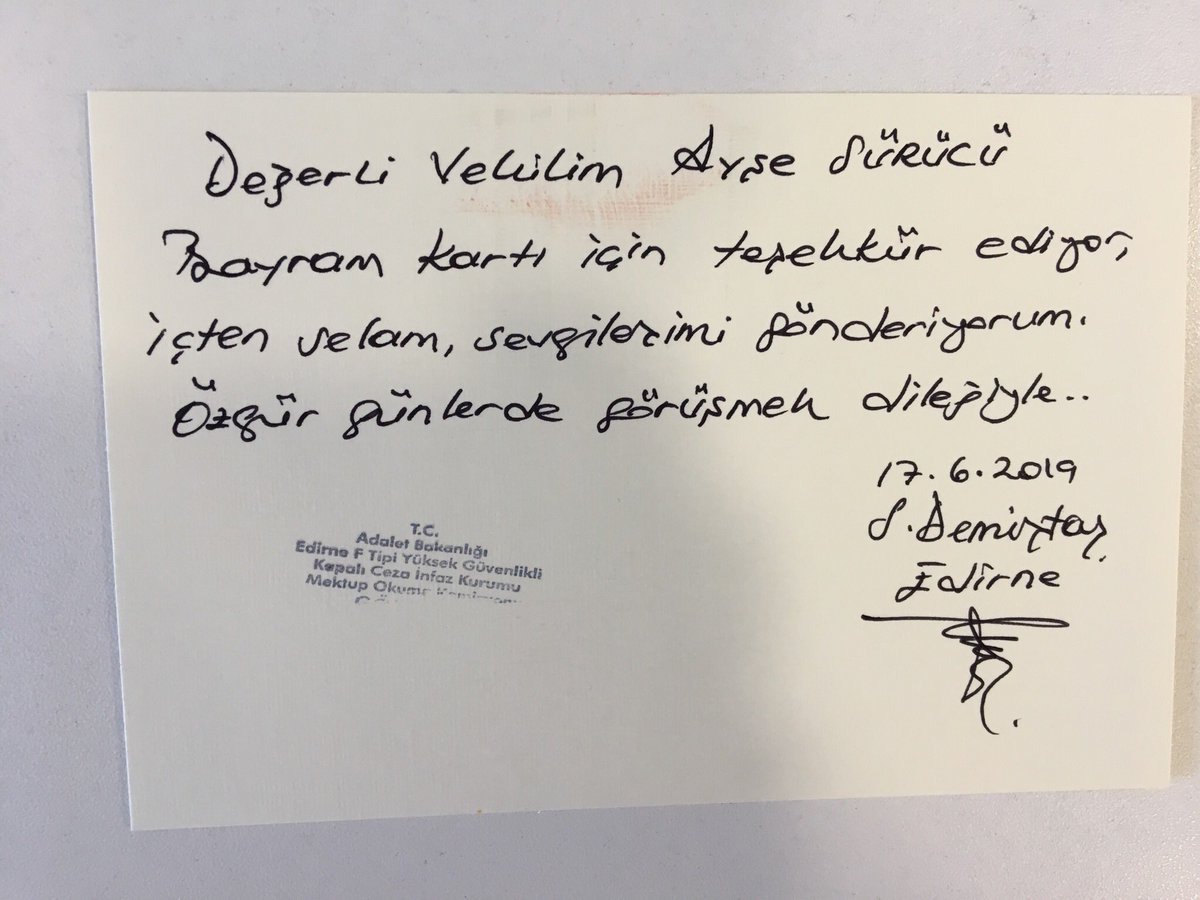 Değerli Vekilim Ayşe SÜRÜCÜ
Bayram kartı için teşekkür ediyor,
içten selam, sevgilerimi gönderiyorum.
Özgür günlerde görüşmek dileğiyle..
17.6.2019
S. Demirtaş
Edirne
T.C.
Adalet Bakanlığı
Edirne F Tipi Yüksek Güvenlikli
Kapalı Ceza İnfaz Kurumu
Mektup Okuma